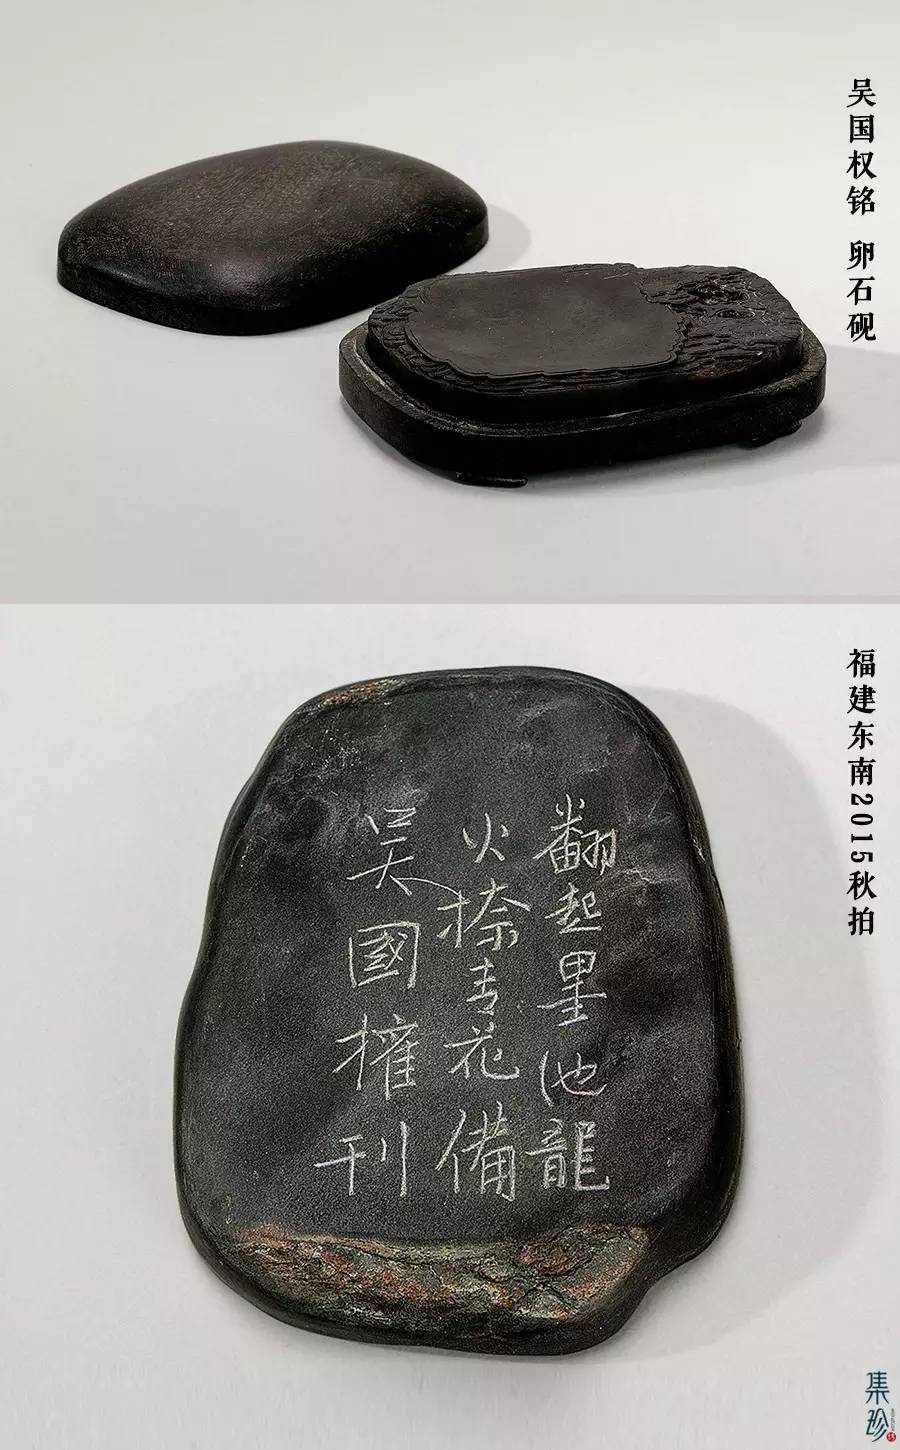 吴国权铭 卵石砚
福建东南2015秋拍
翻起墨池龍
火捺青花備
吴國權刊
集珍